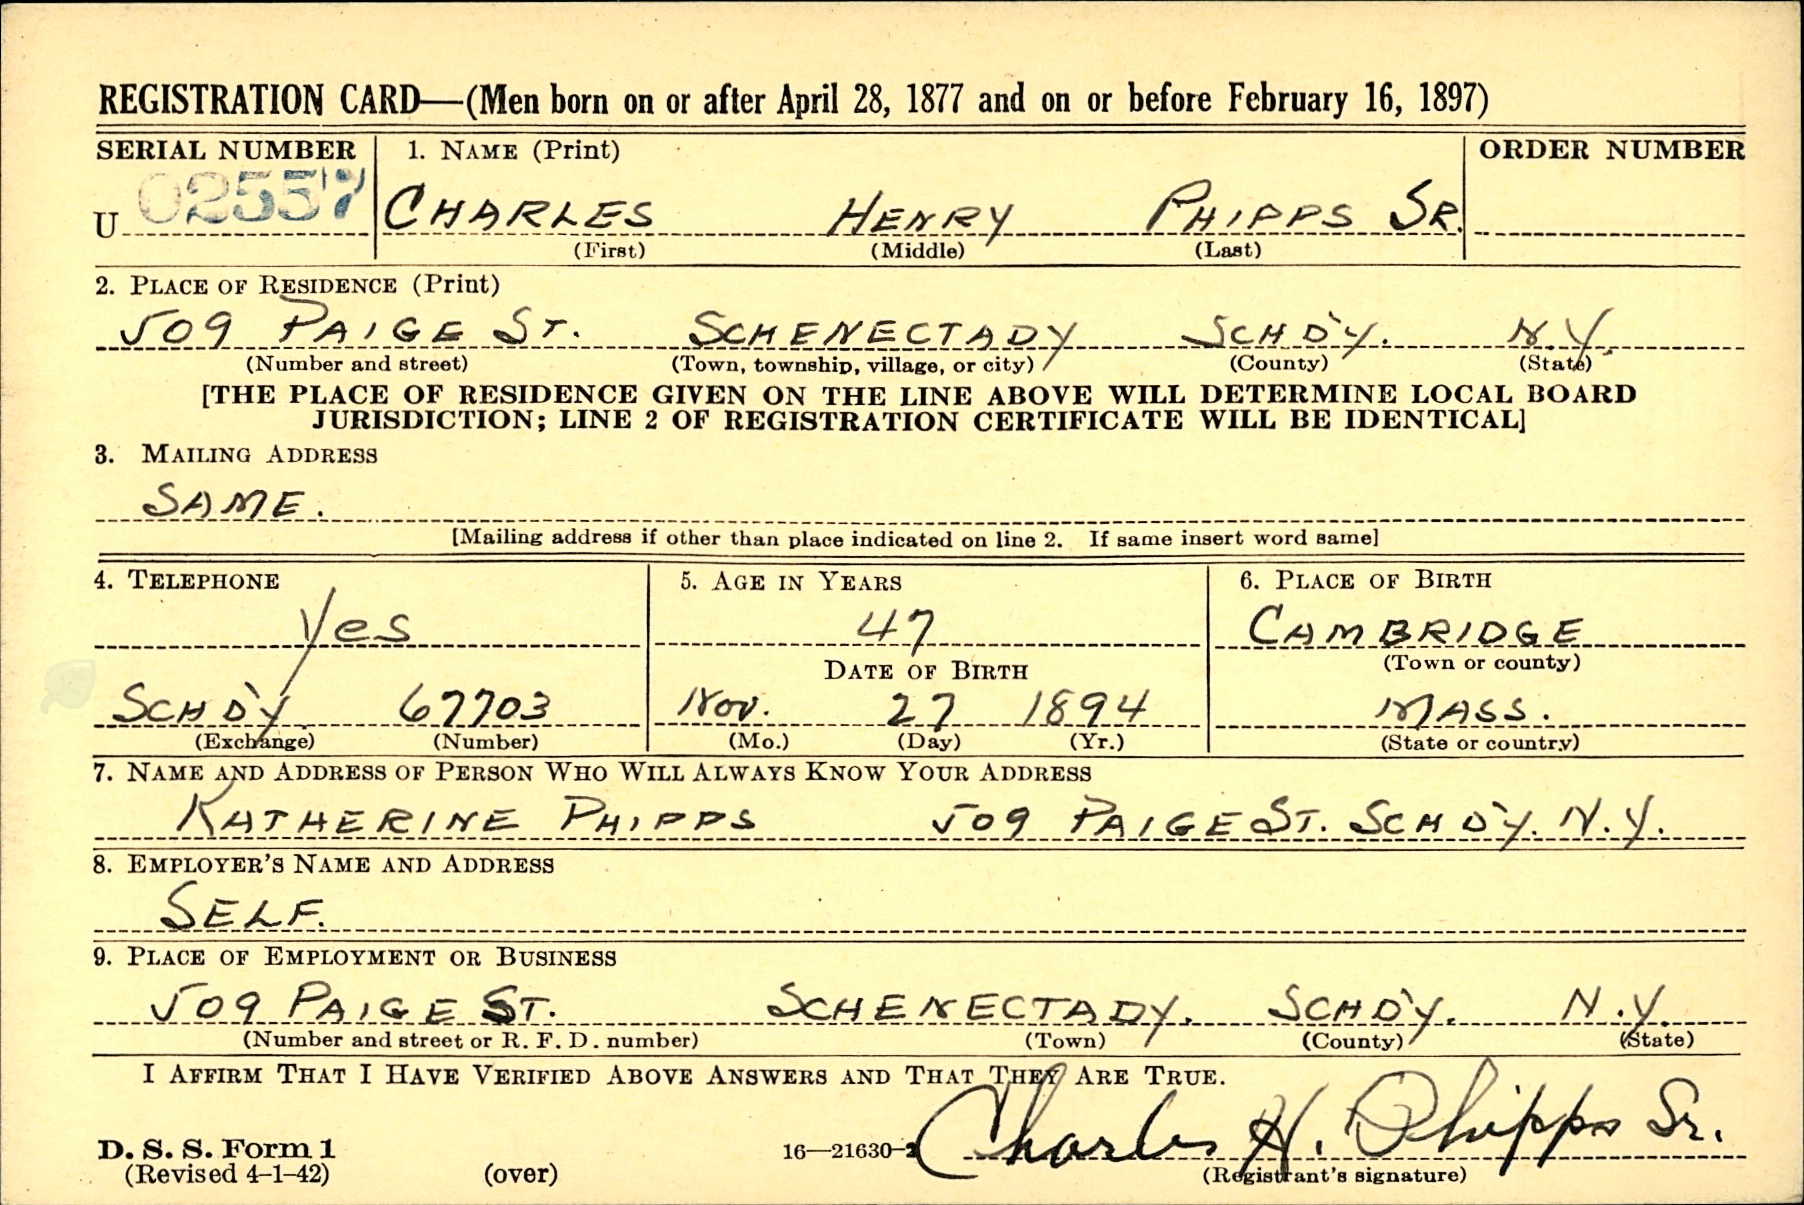 REGISTRATION CARD—(Men born on or after April 28, 1877 and on or before February 16, 1897)
SERIAL NUMBER 1. NAME (Print) ORDER NUMBER
U 02557 CHARLES HENRY PHIPPS SR.
(First) (Middle) (Last)
2. PLACE OF RESIDENCE (Print)
509 PAIGE ST. SCHENECTADY SCHD'Y. N.Y.
(Number and street) (Town, township, village, or city) (County) (State)
[THE PLACE OF RESIDENCE GIVEN ON THE LINE ABOVE WILL DETERMINE LOCAL BOARD
JURISDICTION; LINE 2 OF REGISTRATION CERTIFICATE WILL BE IDENTICAL]
3. MAILING ADDRESS
SAME.
[Mailing address if other than place indicated on line 2. If same insert word same]
4. TELEPHONE 5. AGE IN YEARS 6. PLACE OF BIRTH
Yes 47 CAMBRIDGE
DATE OF BIRTH (Town or county)
SCHD'Y 67703 Nov. 27 1894 MASS.
(Exchange) (Number) (Mo.) (Day) (Yr.) (State or country)
7. NAME AND ADDRESS OF PERSON WHO WILL ALWAYS KNOW YOUR ADDRESS
KATHERINE PHIPPS 509 PAIGE ST. SCHD'Y. N.Y.
8. EMPLOYER'S NAME AND ADDRESS
SELF.
9. PLACE OF EMPLOYMENT OR BUSINESS
509 PAIGE ST. SCHENECTADY. SCHD'Y. N.Y.
(Number and street or R. F. D. number) (Town) (County) (State)
I AFFIRM THAT I HAVE VERIFIED ABOVE ANSWERS AND THAT THEY ARE TRUE.
D. S. S. Form 1 16—21630-2 Charles H. Phipps Sr.
(Revised 4-1-42) (over) (Registrant's signature)